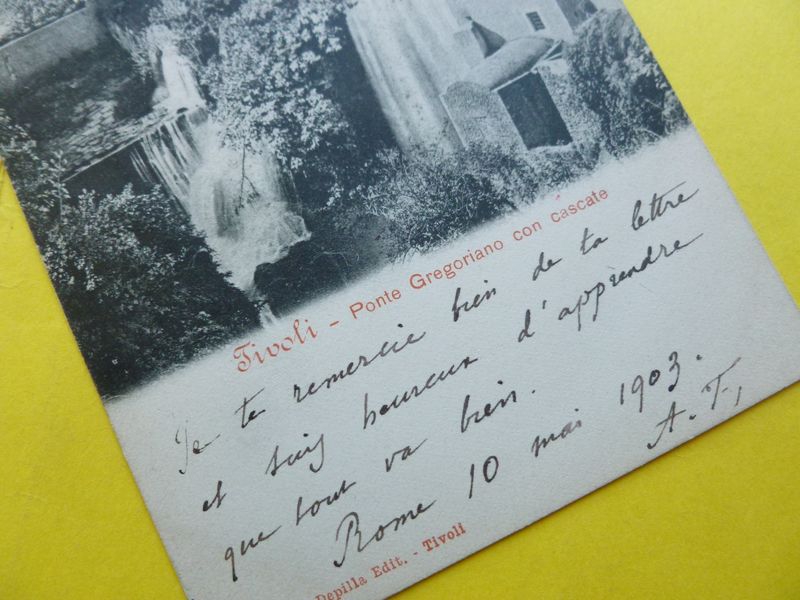 Tivoli - Ponte Gregoriano con cascate
Je te remercie bien de ta lettre
et suis heureux d'apprendre
que tout va bien.
Rome 10 mai 1903.
A. T.
Depilla Edit. - Tivoli